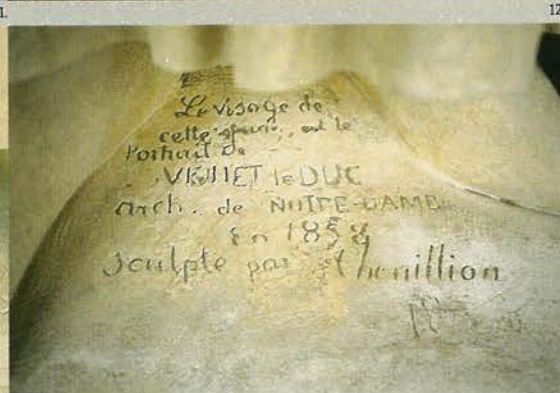 1.
12
Le visage de
cette est le
Portrait de
VIOLLET le DUC
arch. de NOTRE-DAME
En 1858
sculpté par Chenillion